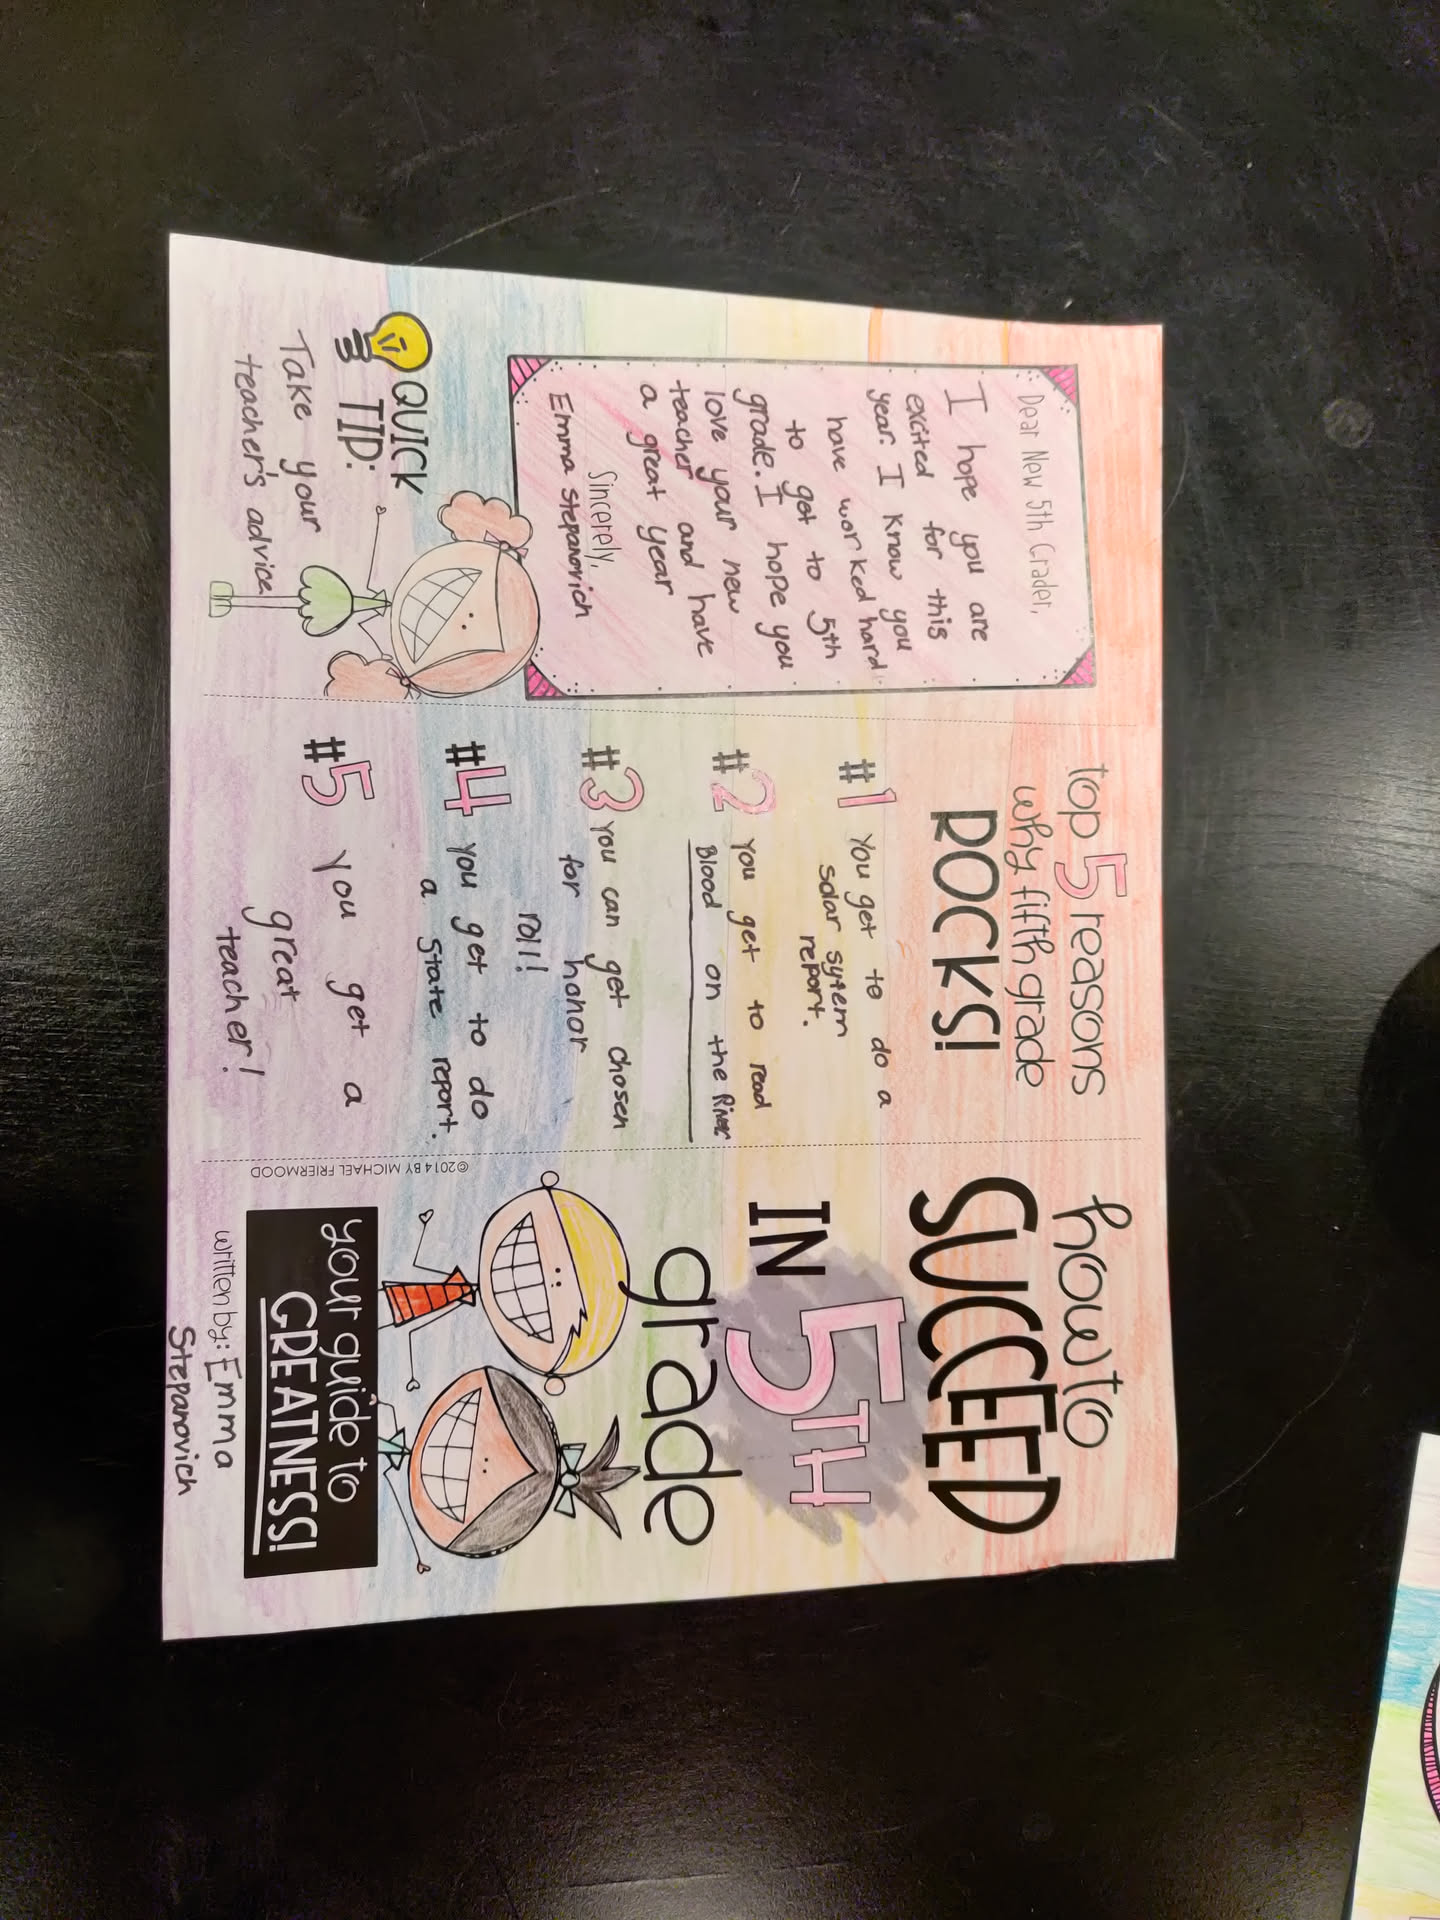 Dear New 5th Grader,
I hope you are
excited for this
year. I know you
have worked hard
to get to 5th
grade. I hope you
love your new
teacher and have
a great year
Sincerely,
Emma Stepanovich
QUICK
TIP:
Take your
teacher's advice
top 5 reasons
why fifth grade
ROCKS!
#1 You get to do a
solar sytem
report.
#2 You get to read
Blood on the River
#3 You can get chosen
for honor
roll!
#4 You get to do
a state report.
#5 You get a
great
teacher!
©2014 BY MICHAEL FRIERMOOD
how to
SUCCEED
IN 5TH
grade
your guide to
GREATNESS!
written by: Emma
Stepanovich